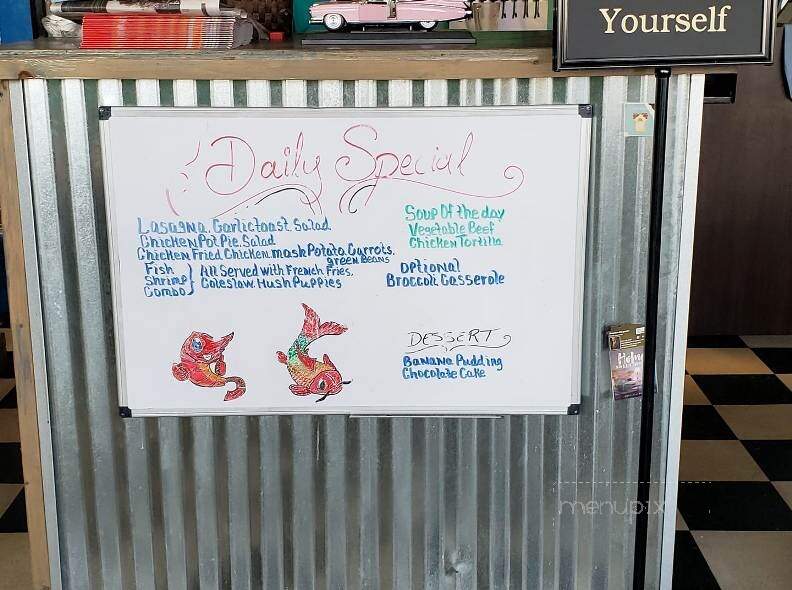 Yourself
Daily Special
Lasagna, Garlic toast Salad
Chicken Pot Pie, Salad
Chicken Fried Chicken, mash Potato Carrots,
green Beans
Fish
Shrimp
Combo
All Served with French Fries,
Coleslaw, Hush Puppies
Soup Of the day
Vegetable Beef
Chicken Tortilla
Optional
Broccoli Casserole
DESSERT
Banana Pudding
Chocolate Cake
menupix